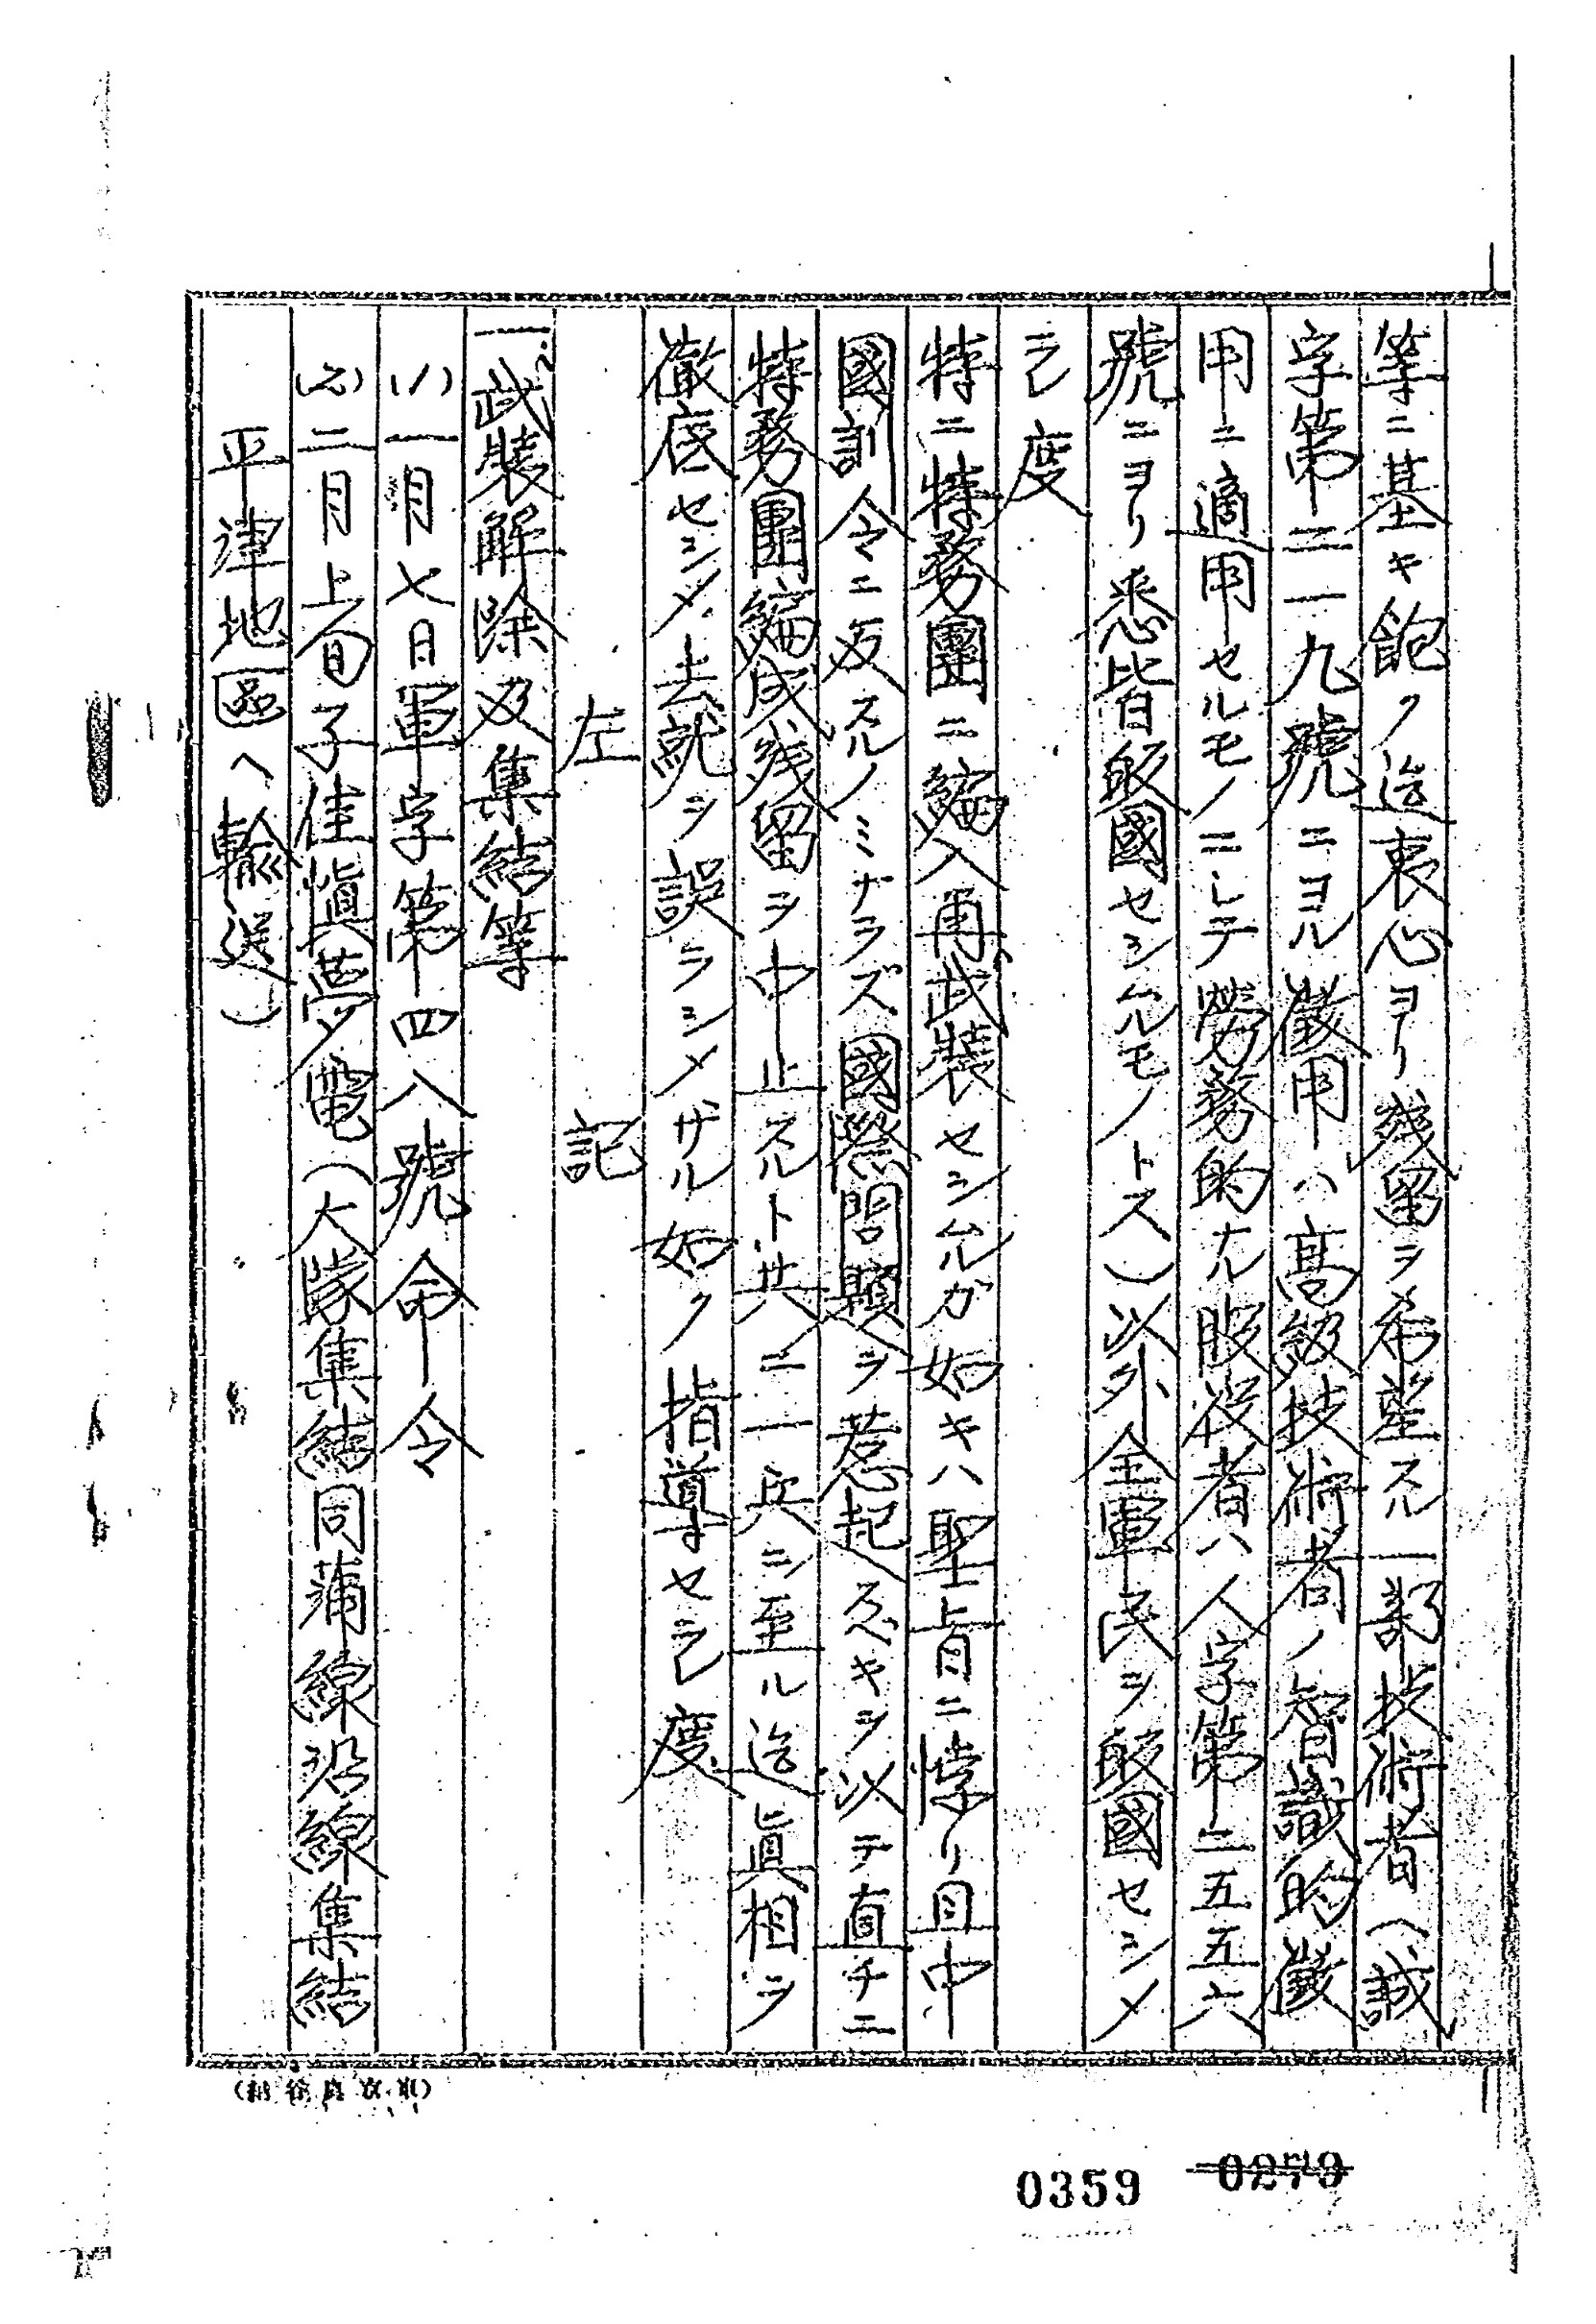 等ニ基キ飽ク迄衷心ヨリ残留ヲ希望スル一部技術者(誠
字第二一九號ニヨル徴用ハ高級技術者ノ智識的徴
用ニ適用セルモノニシテ勞務的ナル服役者ハ人字第二五五六
號ニヨリ悉皆皈國セシムルモノトス)以外全軍民ヲ皈國セシメ
ラレ度
特ニ特務團ニ編入再武装セシムルガ如キハ聖旨ニ悖リ且中
國訓令ニ反スルノミナラズ國際問題ヲ惹起スヘキヲ以テ直チニ
特務團編成残留ヲ中止スルト共ニ一兵ニ至ル迄眞相ヲ
徹底セシメ去就ヲ誤ラシメザル如ク指導セラレ度
左記
一、武装解除及集結等
(1)一月七日軍字第四八號命令
(2)二月上旬子佳慎夢電(大隊集結同蒲線沿線集結
平津地區ヘ輸送)
0359
0279